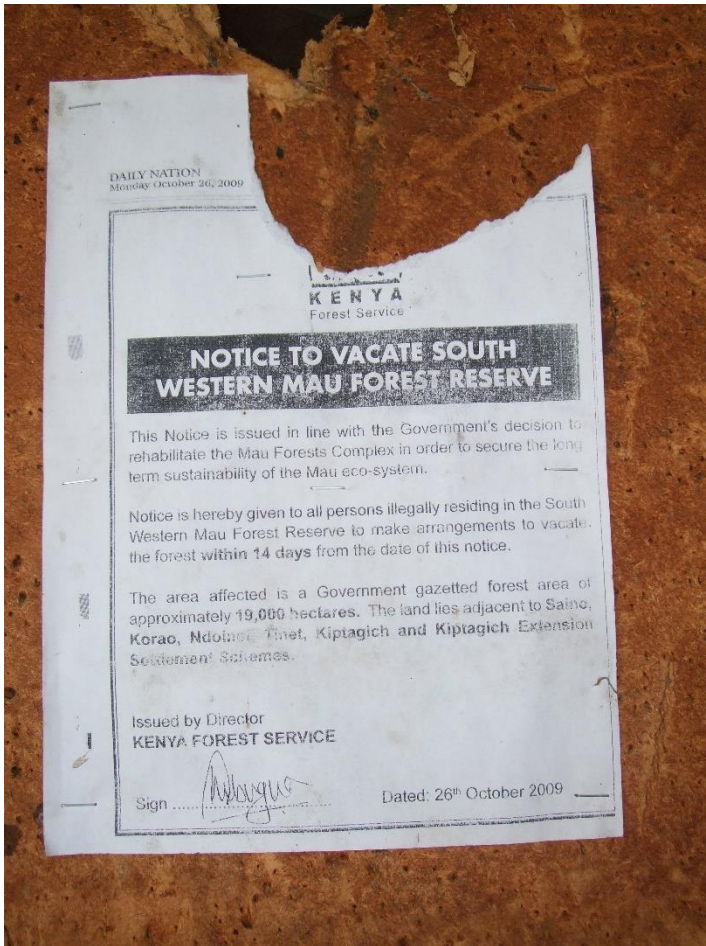 DAILY NATION
Monday October 26, 2009
KENYA
Forest Service
NOTICE TO VACATE SOUTH
WESTERN MAU FOREST RESERVE
This Notice is issued in line with the Government's decision to
rehabilitate the Mau Forests Complex in order to secure the long
term sustainability of the Mau eco-system.
Notice is hereby given to all persons illegally residing in the South
Western Mau Forest Reserve to make arrangements to vacate
the forest within 14 days from the date of this notice.
The area affected is a Government gazetted forest area of
approximately 19,000 hectares. The land lies adjacent to Saino,
Korao, Tinet, Kiptagich and Kiptagich Extension
Settlement Schemes.
Issued by Director
KENYA FOREST SERVICE
Sign ........................ Dated: 26th October 2009